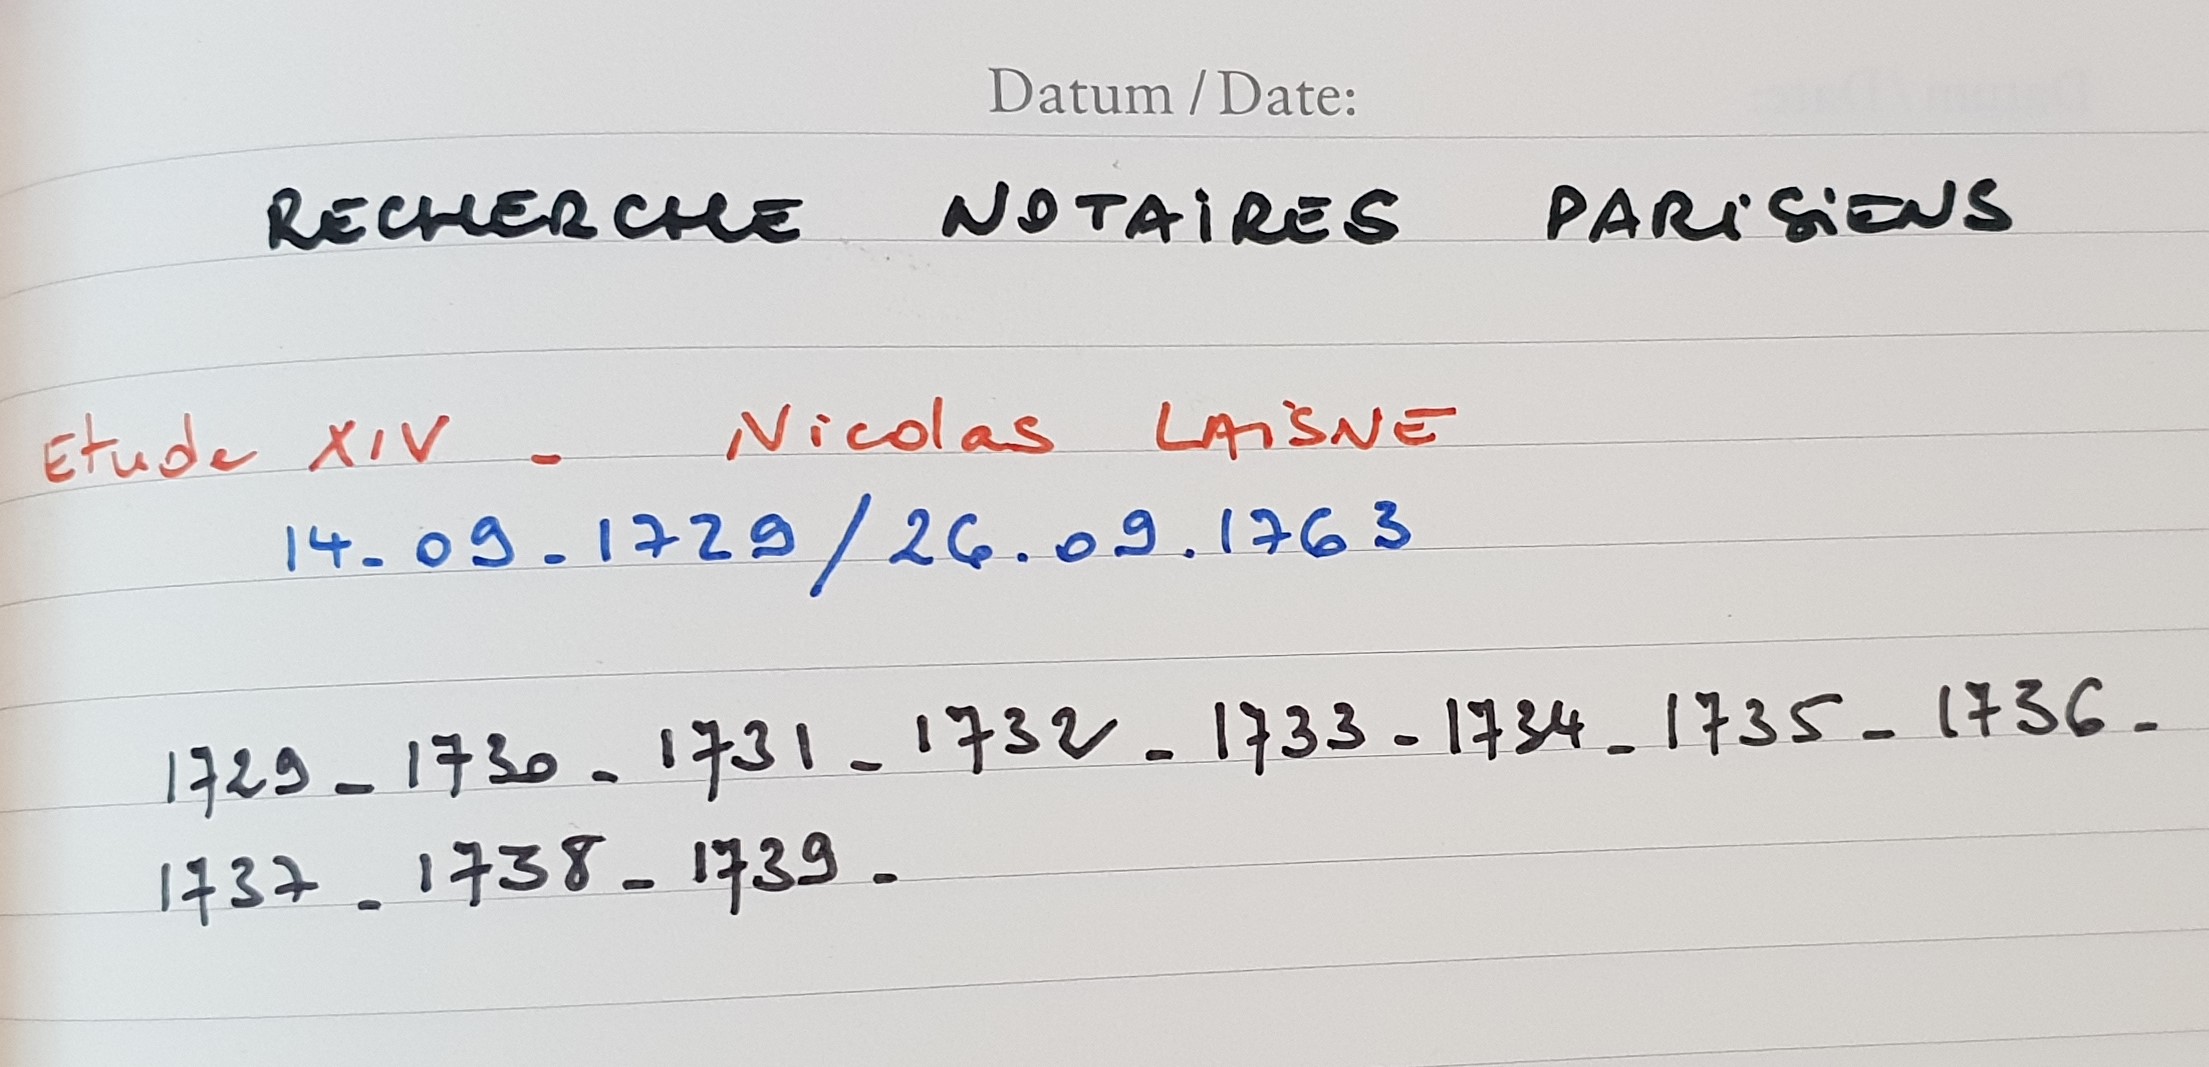 Datum / Date:
RECHERCHE NOTAIRES PARISIENS
Etude XIV - Nicolas LAISNE
14-09-1729/26.09.1763
1729-1730-1731-1732-1733-1734-1735-1736-
1737-1738-1739-